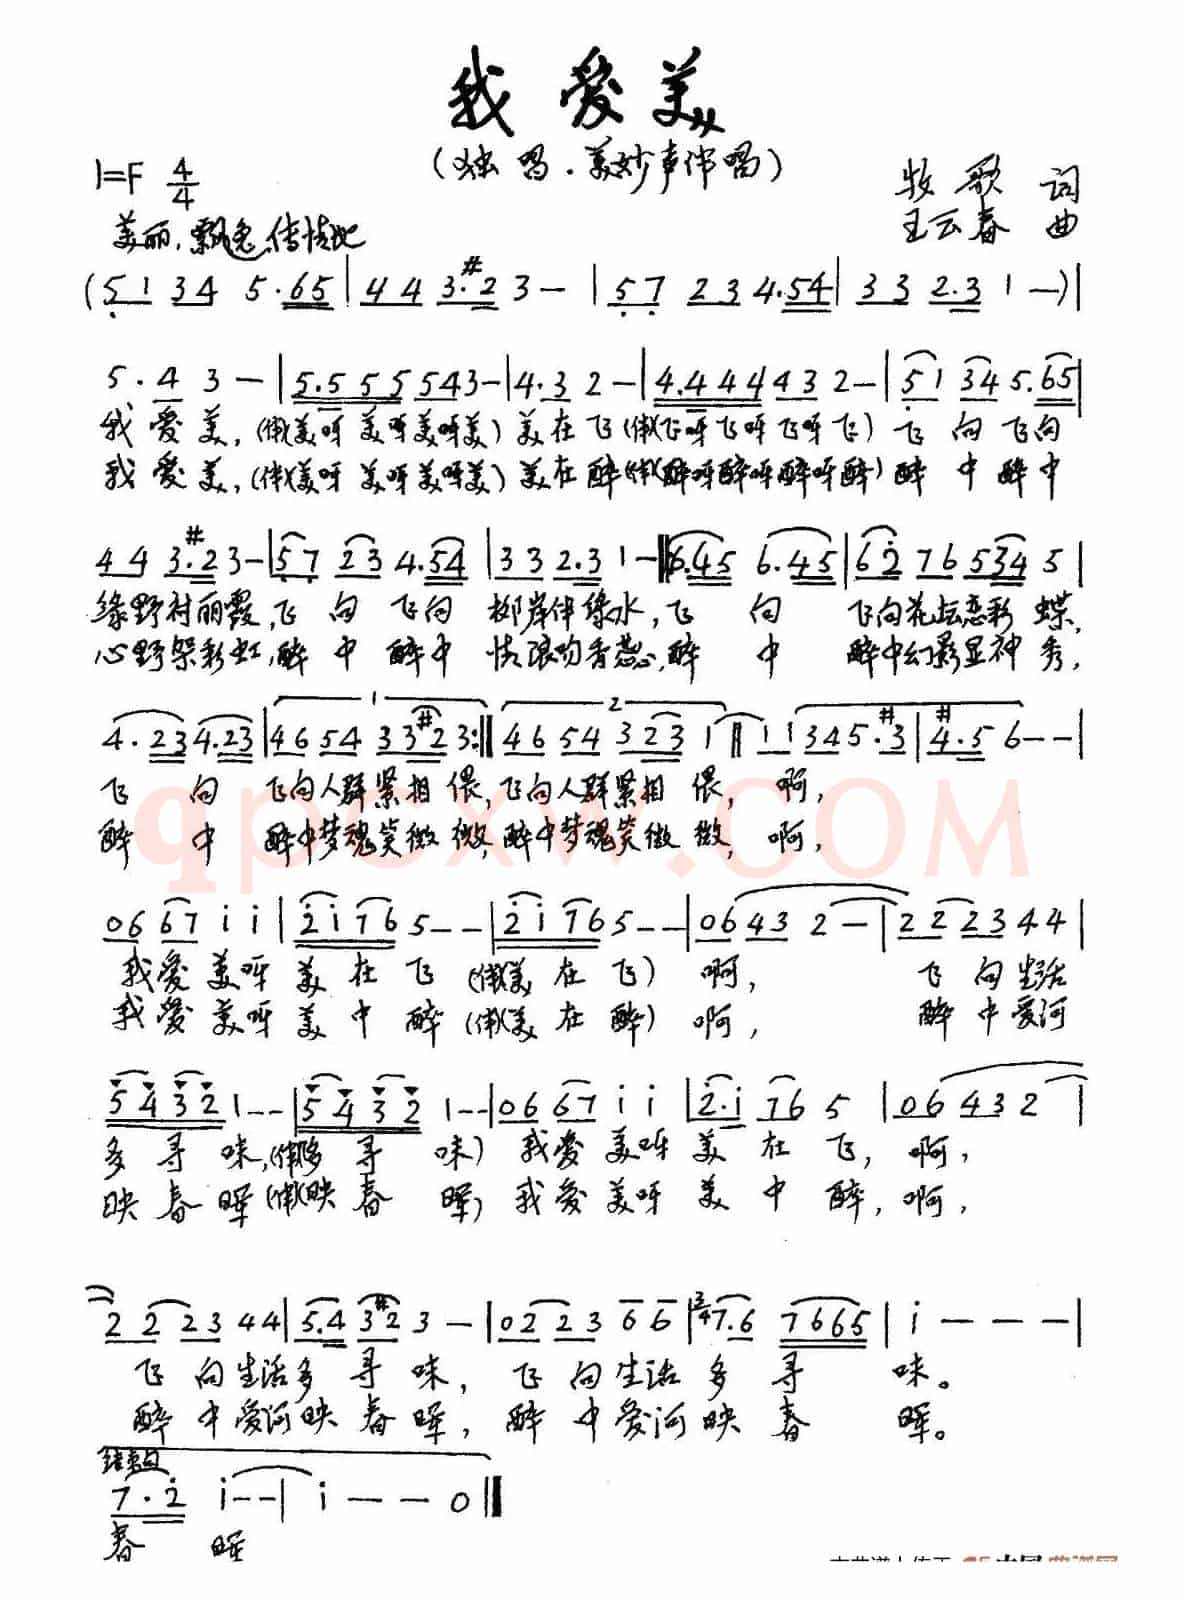 我爱美
(独唱·美妙声伴唱)
1=F 4/4
牧歌 词
王云春 曲
美丽,飘逸,传情地
(5 1 3 4 5·65 | 4 4 3·#2 3 — | 5 7 2 3 4·54 | 3 3 2·3 1 — ) |
5·4 3 — | 5·5 5 5 5 4 3 — | 4·3 2 — | 4·4 4 4 4 3 2 — | 5 1 3 4 5·65 |
我爱美,(伴)(美呀美呀美呀美)美在飞(伴)(飞呀飞呀飞呀飞)飞向飞向
我爱美,(伴)(美呀美呀美呀美)美在醉(伴)(醉呀醉呀醉呀醉)醉中醉中
4 4 3·#2 3 — | 5 7 2 3 4·54 | 3 3 2·3 1 — ‖: 6·45 6·45 | 6 2 7 6 5 3 4 5 |
绿野衬丽霞,飞向飞向柳岸伴绿水,飞向飞向花坛恋彩蝶,
心野架彩虹,醉中醉中情浪吻香蕊,醉中醉中幻影显神秀,
4·23 4·23 | 1 4 6 5 4 3 3 #2 3 :‖ 2 4 6 5 4 3 2 3 1 ‖ 1 1 3 4 5·#3 | #4·5 6 — — |
飞向飞向人群紧相偎,飞向人群紧相偎,啊,
醉中醉中梦魂笑微微,醉中梦魂笑微微,啊,
qpcxw.COM
0 6 6 7 i i | 2 i 7 6 5 — — | 2 i 7 6 5 — — | 0 6 4 3 2 — | 2 2 2 3 4 4 |
我爱美呀美在飞(伴)(美在飞)啊,飞向生活
我爱美呀美中醉(伴)(美在醉)啊,醉中爱河
5 4 3 2 1 — — | 5 4 3 2 1 — — | 0 6 6 7 i i | 2·i 7 6 5 | 0 6 4 3 2 |
多寻味,(伴)(多寻味)我爱美呀美在飞,啊,
映春晖(伴)(映春晖)我爱美呀美中醉,啊,
2 2 2 3 4 4 | 5·4 3 #2 3 — | 0 2 2 3 6 6 | 3/4 7·6 7 6 6 5 | i — — — |
飞向生活多寻味,飞向生活多寻味。
醉中爱河映春晖,醉中爱河映春晖。
结束句
7·2 i — — | i — — 0 ‖
春晖